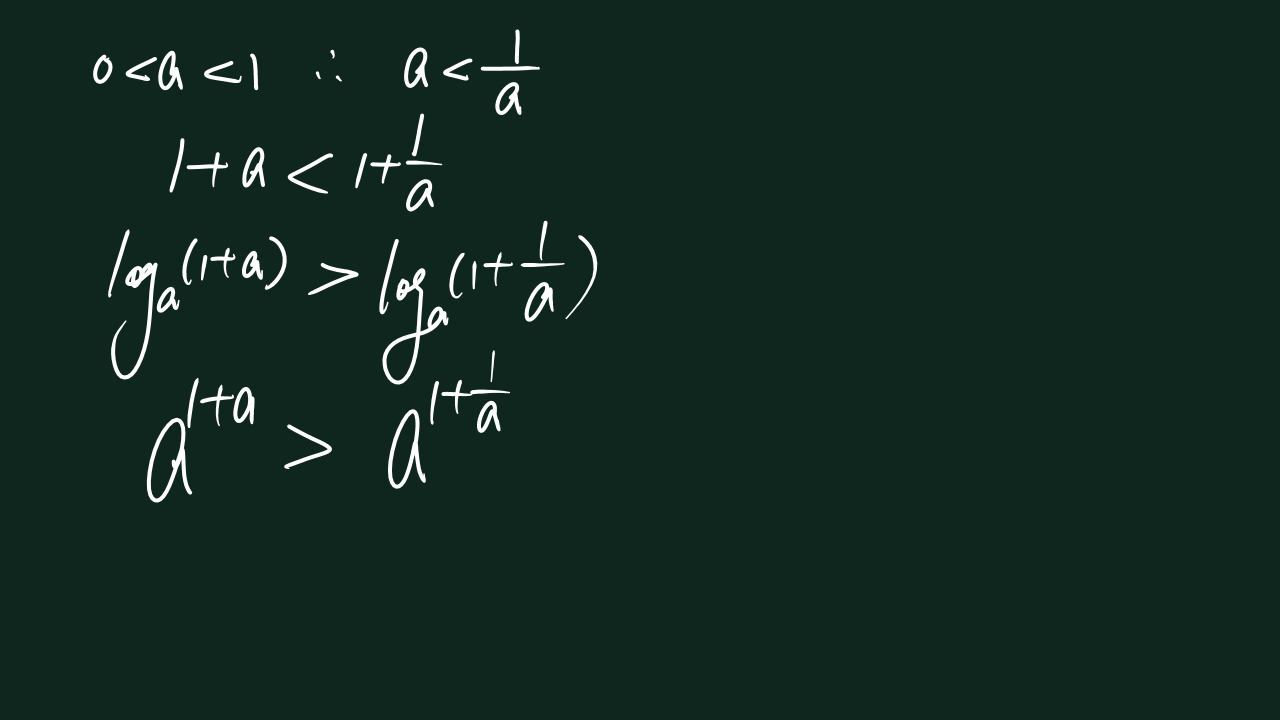 0<a<1 ∴ a<1/a
1+a<1+1/a
logₐ(1+a)>logₐ(1+1/a)
a^(1+a)>a^(1+1/a)